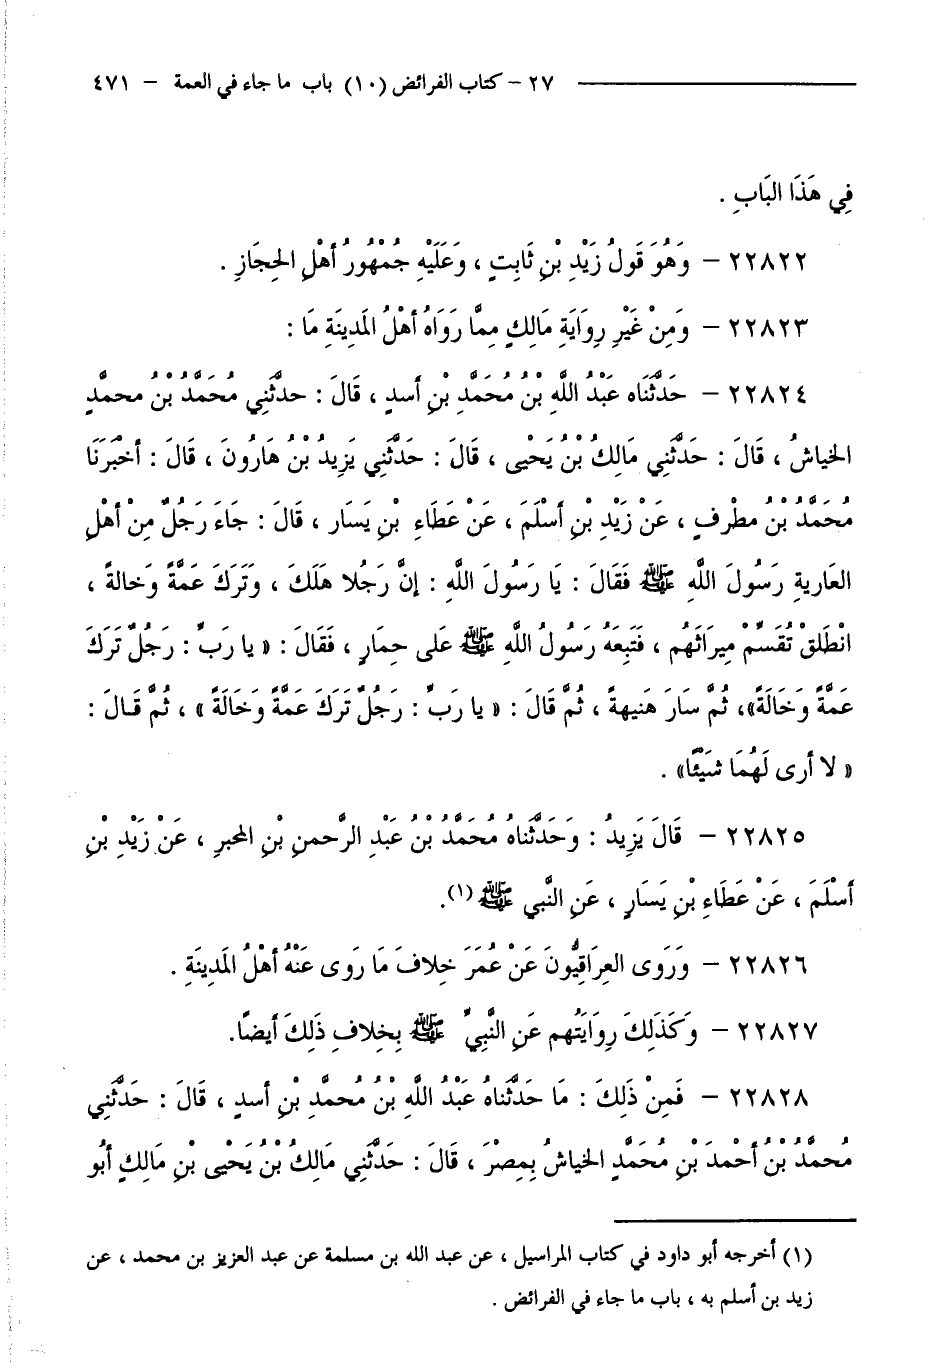 ٢٧ – كتاب الفرائض (١٠) باب ما جاء في العمة – ٤٧١
فِي هَذَا البَابِ .
٢٢٨٢٢ – وَهُوَ قَولُ زَيْدِ بْنِ ثَابِتٍ ، وَعَلَيْهِ جُمْهُورُ أهْلِ الحِجَازِ .
٢٢٨٢٣ – وَمِنْ غَيْرِ رِوَايَةِ مَالِكٍ مِمَّا رَوَاهُ أهْلُ المَدِينَةِ مَا :
٢٢٨٢٤ – حَدَّثَنَاه عَبْدُ اللَّهِ بْنُ مُحَمَّدِ بْنِ أسدٍ ، قَالَ : حدثَّنِي مُحَمَّدُ بْنُ محمدٍ
الخياشُ ، قَالَ : حَدثَّنِي مَالِكُ بْنُ يَحْيى ، قَالَ : حَدثَّنِي يَزِيدُ بْنُ هَارُونَ ، قَالَ : أخْبَرَنَا
مُحَمَّدُ بْنُ مطْرفٍ ، عَنْ زَيْدِ بْنِ أَسْلَمَ ، عَنْ عَطَاءِ بْنِ يَسَار ، قَالَ : جَاءَ رَجُلٌ مِنْ أهْلِ
العَاريةِ رَسُولَ اللَّهِ ﷺ فَقَالَ : يَا رَسُولَ اللَّهِ : إنَّ رَجُلا هَلَكَ ، وَتَرَكَ عَمَّةً وَخالةً ،
انْطَلقْ تُقَسِّمْ مِيرَاثَهُم ، فَتَبِعَهُ رَسُولُ اللَّهِ ﷺ عَلى حِمَارٍ ، فَقَالَ : « يا رَبِّ : رَجُلٌ تَرَكَ
عَمَّةً وَخَالَةً»، ثُمَّ سَارَ هَنيهةً ، ثُمَّ قَالَ : « يا رَبِّ : رَجُلٌ تَرَكَ عَمَّةً وَخَالَةً » ، ثُمَّ قَـالَ :
« لا أرى لَهُمَا شَيْئًا» .
٢٢٨٢٥ – قَالَ يَزِيدُ : وَحَدَّثَناهُ مُحَمَّدُ بْنُ عَبْدِ الرَّحمنِ بْنِ المحبرِ ، عَنْ زَيْدِ بْنِ
أَسْلَمَ ، عَنْ عَطَاءِ بْنِ يَسَارٍ ، عَنِ النَّبي ﷺ (١).
٢٢٨٢٦ – وَرَوى العِرَاقِيُّونَ عَنْ عُمَرَ خِلافَ مَا رَوى عَنْهُ أهْلُ المَدِينَةِ .
٢٢٨٢٧ – وَكَذَلِكَ رِوَايَتُهم عَنِ النَّبِيِّ ﷺ بِخِلافِ ذَلِكَ أيضًا.
٢٢٨٢٨ – فَمِنْ ذَلِكَ : مَا حَدَّثَناهُ عَبْدُ اللَّهِ بْنُ مُحمَّدِ بْنِ أسدٍ ، قَالَ : حَدثَّنِي
مُحمَّدُ بْنُ أحْمدَ بْنِ مُحَمَّدٍ الخياشُ بِمِصْرَ ، قَالَ : حَدثَّنِي مَالِكُ بْنُ يَحْيى بْنِ مَالِكٍ أبُو
(١) أخرجه أبو داود في كتاب المراسيل ، عن عبد الله بن مسلمة عن عبد العزيز بن محمد ، عن
زيد بن أسلم به ، باب ما جاء في الفرائض .